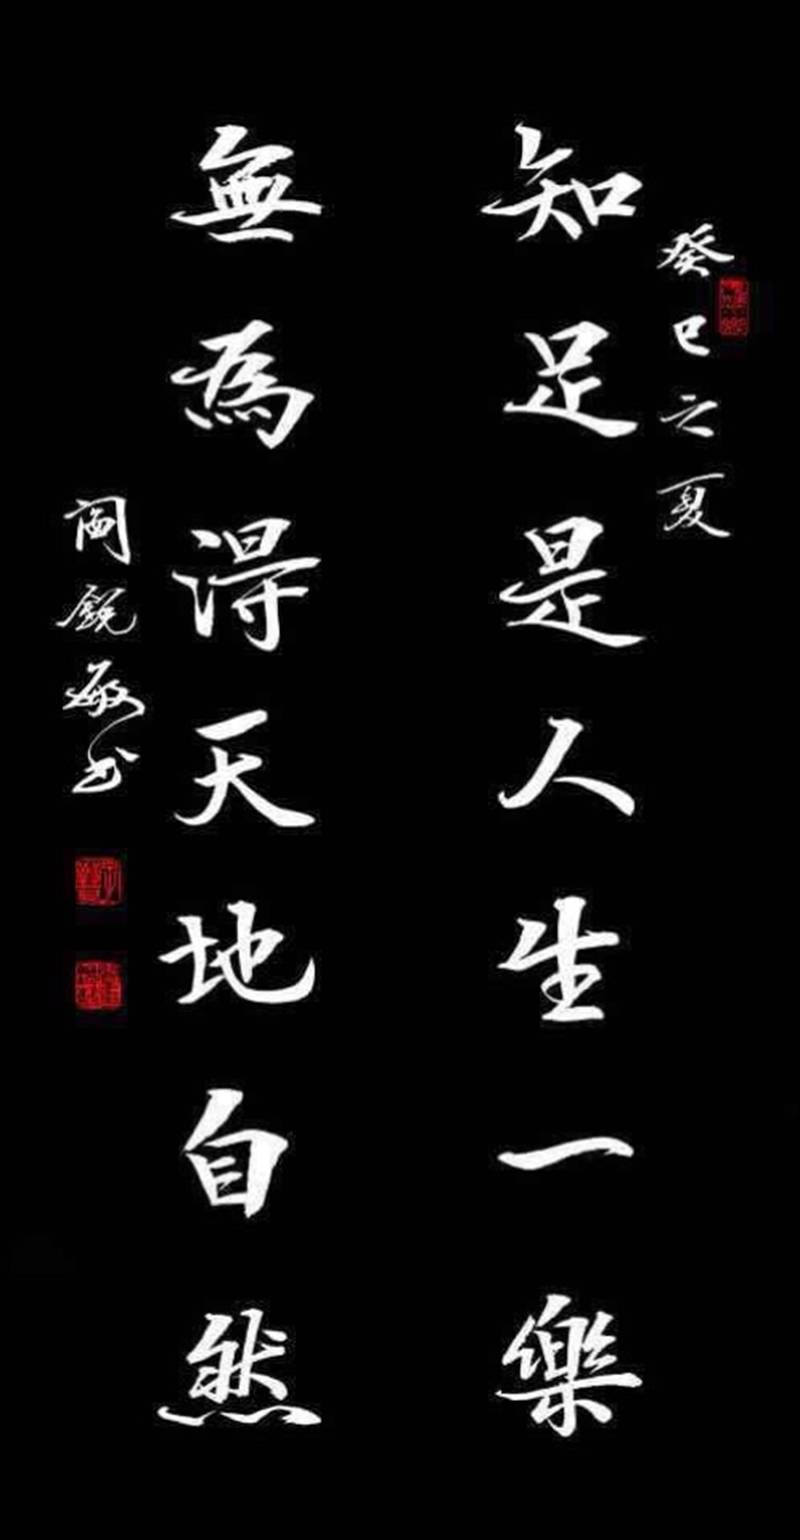 癸巳之夏
知足是人生一樂
無為得天地自然
閻銳敏書